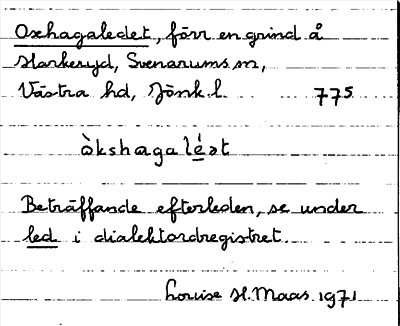 Oxhagaledet, förr en grind å
Harkeryd, Svenarums sn,
Västra hd, Jönk. l. 775
òkshagalé̱ət
Beträffande efterleden, se under
led i dialektordregistret.
Louise H. Maas 1971